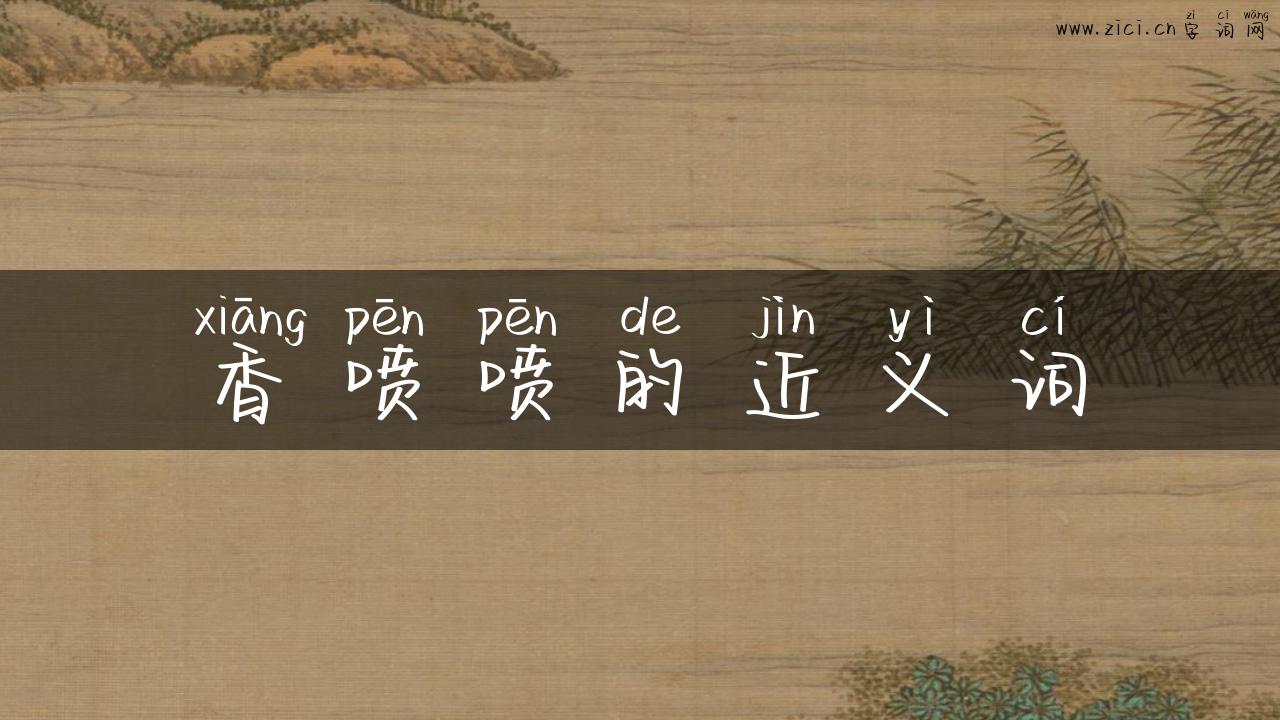 zì cí wǎng
www.zici.cn 字词网
xiāng pēn pēn de jìn yì cí
香喷喷的近义词